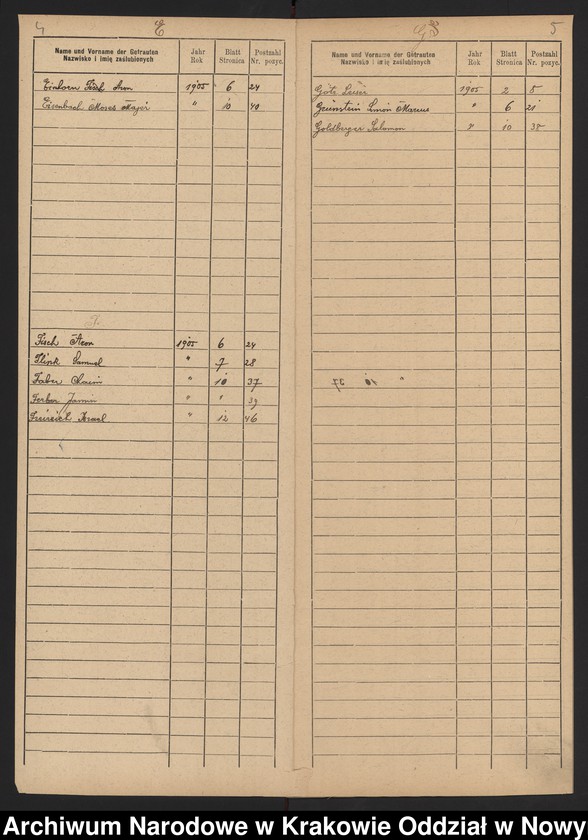 4
E
Name und Vorname der Getrauten
Nazwisko i imię zaślubionych
Jahr
Rok
Blatt
Stronica
Postzahl
Nr. pozyc.
Einhorn Fisch Aron 1905 6 24
Eisenbach Moses Majer " 10 40
F.
Fisch Aron 1905 6 24
Flink Samuel " 7 28
Faber Chaim " 10 37
Ferber " " 39
Israel " 12 46
G
5
Name und Vorname der Getrauten
Nazwisko i imię zaślubionych
Jahr
Rok
Blatt
Stronica
Postzahl
Nr. pozyc.
Götz Leiser 1905 2 5
Grünstein Simon Marcus " 6 21
Goldberger Salomon " 10 38
Archiwum Narodowe w Krakowie Oddział w Nowy